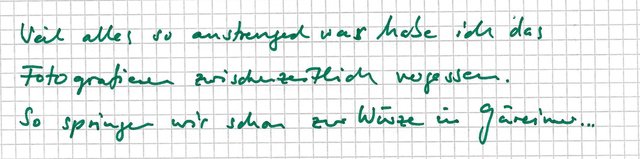 Weil alles so anstrengend war habe ich das
Fotografieren zwischenzeitlich vergessen.
So springen wir schon zur Würze in Gäreimer...